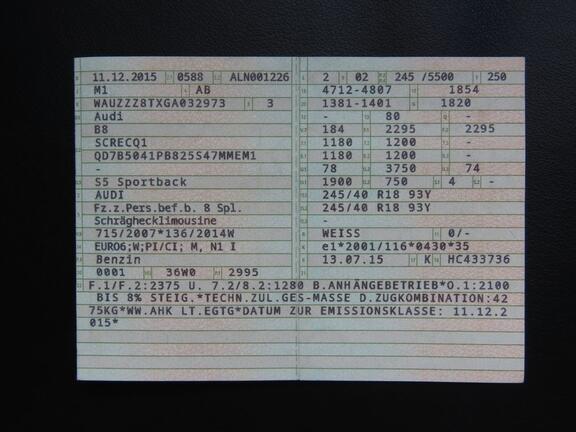 11.12.2015 0588 ALN001226
M1 AB
WAUZZZ8TXGA032973 3
Audi
B8
SCRECQ1
QD7B5041PB825S47MMEM1
-
S5 Sportback
AUDI
Fz.z.Pers.bef.b. 8 Spl.
Schräghecklimousine
715/2007*136/2014W
EURO6;W;PI/CI; M, N1 I
Benzin
0001 36W0 2995
2 02 245 /5500 250
4712-4807 1854
1381-1401 1820
- 80 -
184 2295 2295
1180 1200 -
1180 1200 -
78 3750 74
1900 750 4 -
245/40 R18 93Y
245/40 R18 93Y
-
WEISS 0/-
e1*2001/116*0430*35
13.07.15 K HC433736
F.1/F.2:2375 U. 7.2/8.2:1280 B.ANHÄNGEBETRIEB*O.1:2100
BIS 8% STEIG.*TECHN.ZUL.GES-MASSE D.ZUGKOMBINATION:42
75KG*WW.AHK LT.EGTG*DATUM ZUR EMISSIONSKLASSE: 11.12.2
015*